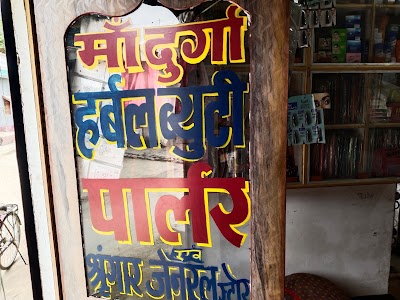 माँ दुर्गा
हर्बल ब्युटी
पार्लर
एवं
श्रृंगार जेनरल स्टोर